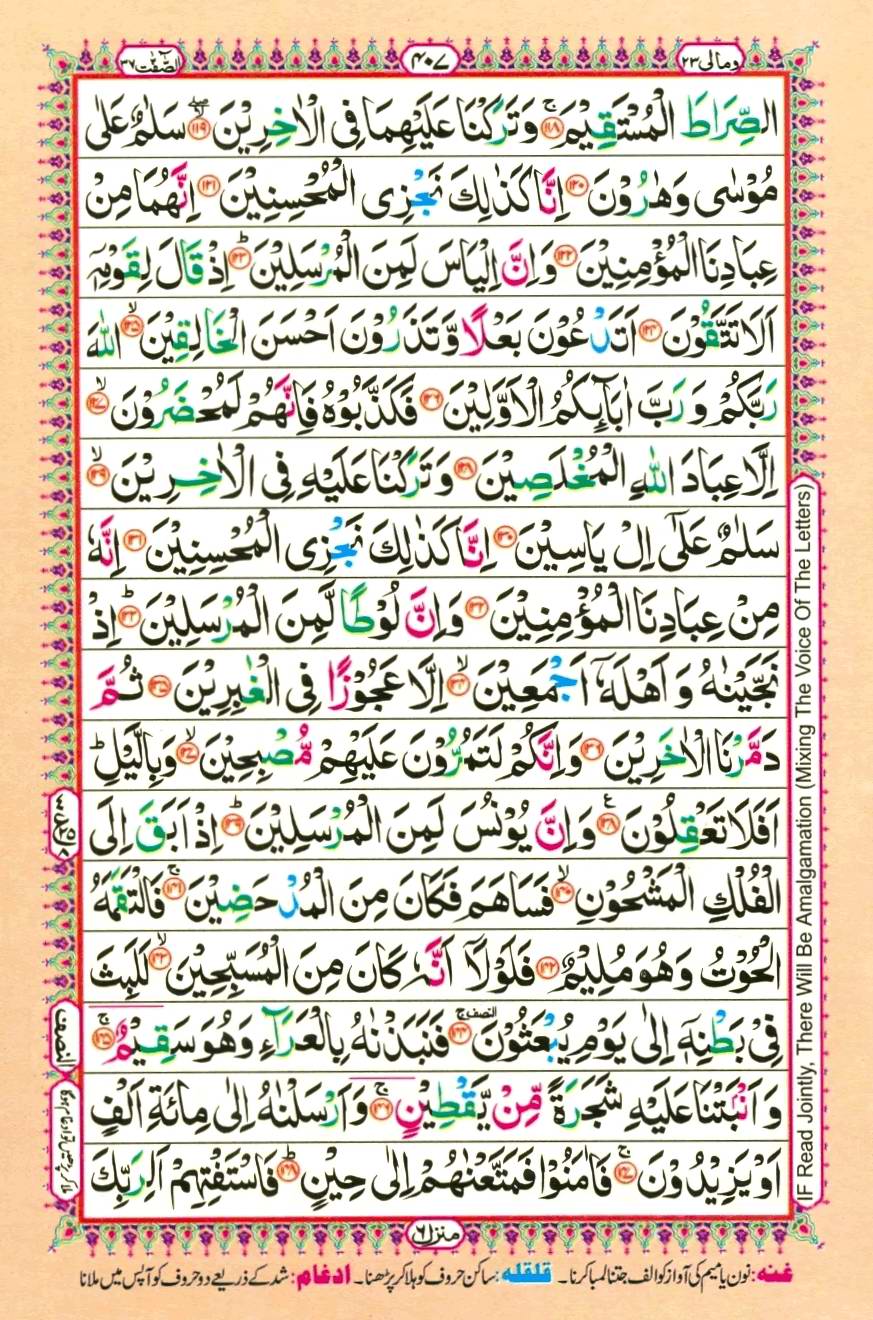 وما لی ۲۳
۴۰۷
الصّٰٓفّٰت ۳۷
الصِّرَاطَ الْمُسْتَقِیْمَ ۚ﴿۱۱۸﴾ وَ تَرَكْنَا عَلَیْهِمَا فِی الْاٰخِرِیْنَ ۙ﴿۱۱۹﴾ سَلٰمٌ عَلٰی
مُوْسٰی وَ هٰرُوْنَ ﴿۱۲۰﴾ اِنَّا كَذٰلِكَ نَجْزِی الْمُحْسِنِیْنَ ﴿۱۲۱﴾ اِنَّهُمَا مِنْ
عِبَادِنَا الْمُؤْمِنِیْنَ ﴿۱۲۲﴾ وَ اِنَّ اِلْیَاسَ لَمِنَ الْمُرْسَلِیْنَ ؕ﴿۱۲۳﴾ اِذْ قَالَ لِقَوْمِهٖۤ
اَلَا تَتَّقُوْنَ ﴿۱۲۴﴾ اَتَدْعُوْنَ بَعْلًا وَّ تَذَرُوْنَ اَحْسَنَ الْخَالِقِیْنَ ۙ﴿۱۲۵﴾ اللّٰهَ
رَبَّكُمْ وَ رَبَّ اٰبَآىِٕكُمُ الْاَوَّلِیْنَ ﴿۱۲۶﴾ فَكَذَّبُوْهُ فَاِنَّهُمْ لَمُحْضَرُوْنَ ۙ﴿۱۲۷﴾
اِلَّا عِبَادَ اللّٰهِ الْمُخْلَصِیْنَ ﴿۱۲۸﴾ وَ تَرَكْنَا عَلَیْهِ فِی الْاٰخِرِیْنَ ۙ﴿۱۲۹﴾
سَلٰمٌ عَلٰۤی اِلْ یَاسِیْنَ ﴿۱۳۰﴾ اِنَّا كَذٰلِكَ نَجْزِی الْمُحْسِنِیْنَ ﴿۱۳۱﴾ اِنَّهٗ
مِنْ عِبَادِنَا الْمُؤْمِنِیْنَ ﴿۱۳۲﴾ وَ اِنَّ لُوْطًا لَّمِنَ الْمُرْسَلِیْنَ ؕ﴿۱۳۳﴾ اِذْ
نَجَّیْنٰهُ وَ اَهْلَهٗۤ اَجْمَعِیْنَ ۙ﴿۱۳۴﴾ اِلَّا عَجُوْزًا فِی الْغٰبِرِیْنَ ﴿۱۳۵﴾ ثُمَّ
دَمَّرْنَا الْاٰخَرِیْنَ ﴿۱۳۶﴾ وَ اِنَّكُمْ لَتَمُرُّوْنَ عَلَیْهِمْ مُّصْبِحِیْنَ ۙ﴿۱۳۷﴾ وَ بِالَّیْلِ ؕ
اَفَلَا تَعْقِلُوْنَ ﴿۱۳۸﴾ وَ اِنَّ یُوْنُسَ لَمِنَ الْمُرْسَلِیْنَ ؕ﴿۱۳۹﴾ اِذْ اَبَقَ اِلَی
الْفُلْكِ الْمَشْحُوْنِ ۙ﴿۱۴۰﴾ فَسَاهَمَ فَكَانَ مِنَ الْمُدْحَضِیْنَ ۚ﴿۱۴۱﴾ فَالْتَقَمَهُ
الْحُوْتُ وَ هُوَ مُلِیْمٌ ﴿۱۴۲﴾ فَلَوْ لَاۤ اَنَّهٗ كَانَ مِنَ الْمُسَبِّحِیْنَ ۙ﴿۱۴۳﴾ لَلَبِثَ
فِیْ بَطْنِهٖۤ اِلٰی یَوْمِ یُبْعَثُوْنَ ۚ﴿۱۴۴﴾ فَنَبَذْنٰهُ بِالْعَرَآءِ وَ هُوَ سَقِیْمٌ ۚ﴿۱۴۵﴾
وَ اَنْۢبَتْنَا عَلَیْهِ شَجَرَةً مِّنْ یَّقْطِیْنٍ ۚ﴿۱۴۶﴾ وَ اَرْسَلْنٰهُ اِلٰی مِائَةِ اَلْفٍ
اَوْ یَزِیْدُوْنَ ۚ﴿۱۴۷﴾ فَاٰمَنُوْا فَمَتَّعْنٰهُمْ اِلٰی حِیْنٍ ؕ﴿۱۴۸﴾ فَاسْتَفْتِهِمْ اَلِرَبِّكَ
النصف
IF Read Jointly, There Will Be Amalgamation (Mixing The Voice Of The Letters)
منزل ۶
غنه: نون یا میم کی آواز کو الف جتنا لمبا کرنا۔ قلقله: ساکن حروف کو ہلا کر پڑھنا۔ ادغام: شد کے ذریعے دو حروف کو آپس میں ملانا